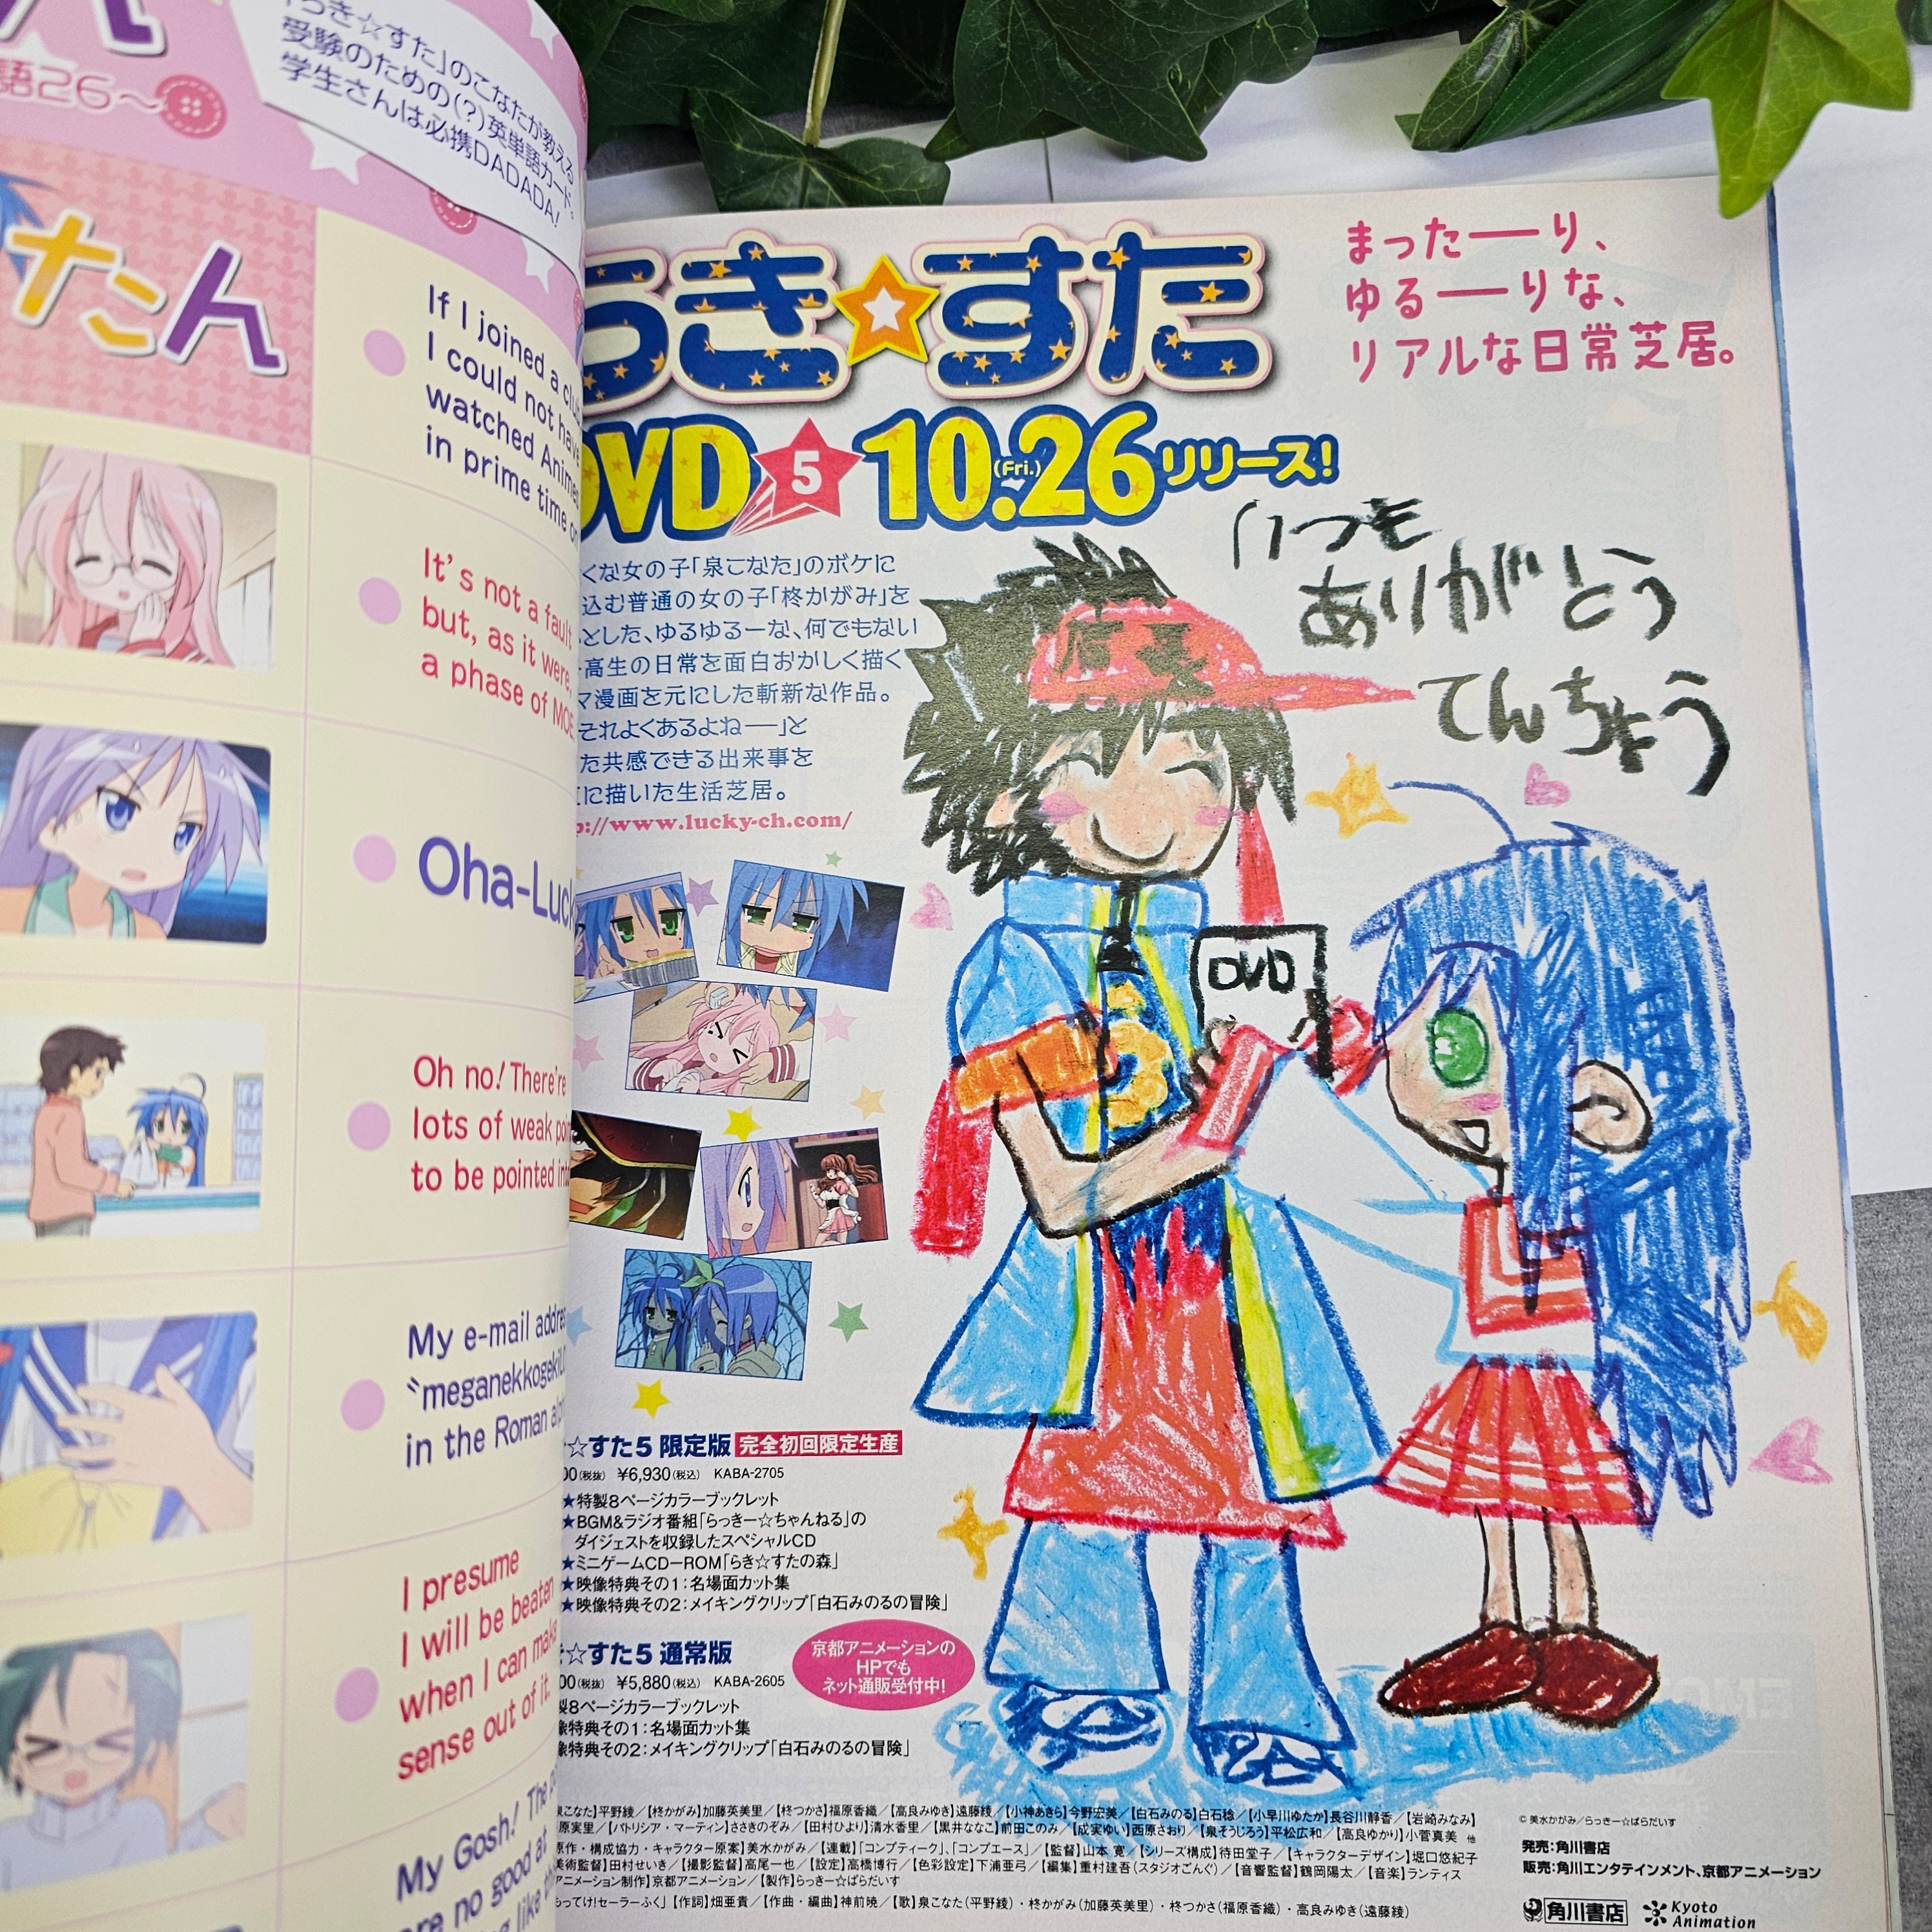 語26～
「らき☆すた」のこなたが教える
受験のための(?)英単語カード。
学生さんは必携DADADA!
たん
If I joined a
I could not have
watched Anime
in prime time
It's not a fault
but, as it were,
a phase of MOE
Oha-Luc
Oh no! There're
lots of weak
to be pointed
My e-mail
"meganekko
in the Roman
I presume
I will be beaten
when I can make
sense out of it.
My Gosh! The
are no good at
like
らき☆すた
まったーーり、
ゆるーーりな、
リアルな日常芝居。
DVD 5 10.26 (Fri.) リリース!
くな女の子「泉こなた」のボケに
込む普通の女の子「柊かがみ」を
とした、ゆるゆるーな、何でもない
高生の日常を面白おかしく描く
マ漫画を元にした斬新な作品。
それよくあるよねー」と
た共感できる出来事を
に描いた生活芝居。
p://www.lucky-ch.com/
いつも
ありがとう
てんちょう
店長
DVD
☆すた5 限定版 完全初回限定生産
00(税抜) ¥6,930(税込) KABA-2705
★特製8ページカラーブックレット
★BGM&ラジオ番組「らっきー☆ちゃんねる」の
ダイジェストを収録したスペシャルCD
★ミニゲームCD-ROM「らき☆すたの森」
★映像特典その1:名場面カット集
★映像特典その2:メイキングクリップ「白石みのるの冒険」
☆すた5 通常版
00(税抜) ¥5,880(税込) KABA-2605
製8ページカラーブックレット
像特典その1:名場面カット集
像特典その2:メイキングクリップ「白石みのるの冒険」
京都アニメーションの
HPでも
ネット通販受付中!
泉こなた】平野綾/【柊かがみ】加藤英美里/【柊つかさ】福原香織/【高良みゆき】遠藤綾/【小神あきら】今野宏美/【白石みのる】白石稔/【小早川ゆたか】長谷川静香/【岩崎みなみ】
原実里/【パトリシア・マーティン】ささきのぞみ/【田村ひより】清水香里/【黒井ななこ】前田このみ/【成実ゆい】西原さおり/【泉そうじろう】平松広和/【高良ゆかり】小菅真美 他
原作・構成協力・キャラクター原案】美水かがみ/【連載】「コンプティーク」、「コンプエース」/【監督】山本 寛/【シリーズ構成】待田堂子/【キャラクターデザイン】堀口悠紀子
美術監督】田村せいき/【撮影監督】高尾一也/【設定】高橋博行/【色彩設定】下浦亜弓/【編集】重村建吾(スタジオごんぐ)/【音響監督】鶴岡陽太/【音楽】ランティス
アニメーション制作】京都アニメーション/【製作】らっきー☆ぱらだいす
もってけ!セーラーふく」【作詞】畑亜貴/【作曲・編曲】神前暁/【歌】泉こなた(平野綾)・柊かがみ(加藤英美里)・柊つかさ(福原香織)・高良みゆき(遠藤綾)
©美水かがみ/らっきー☆ぱらだいす
発売:角川書店
販売:角川エンタテインメント、京都アニメーション
角川書店
Kyoto
Animation